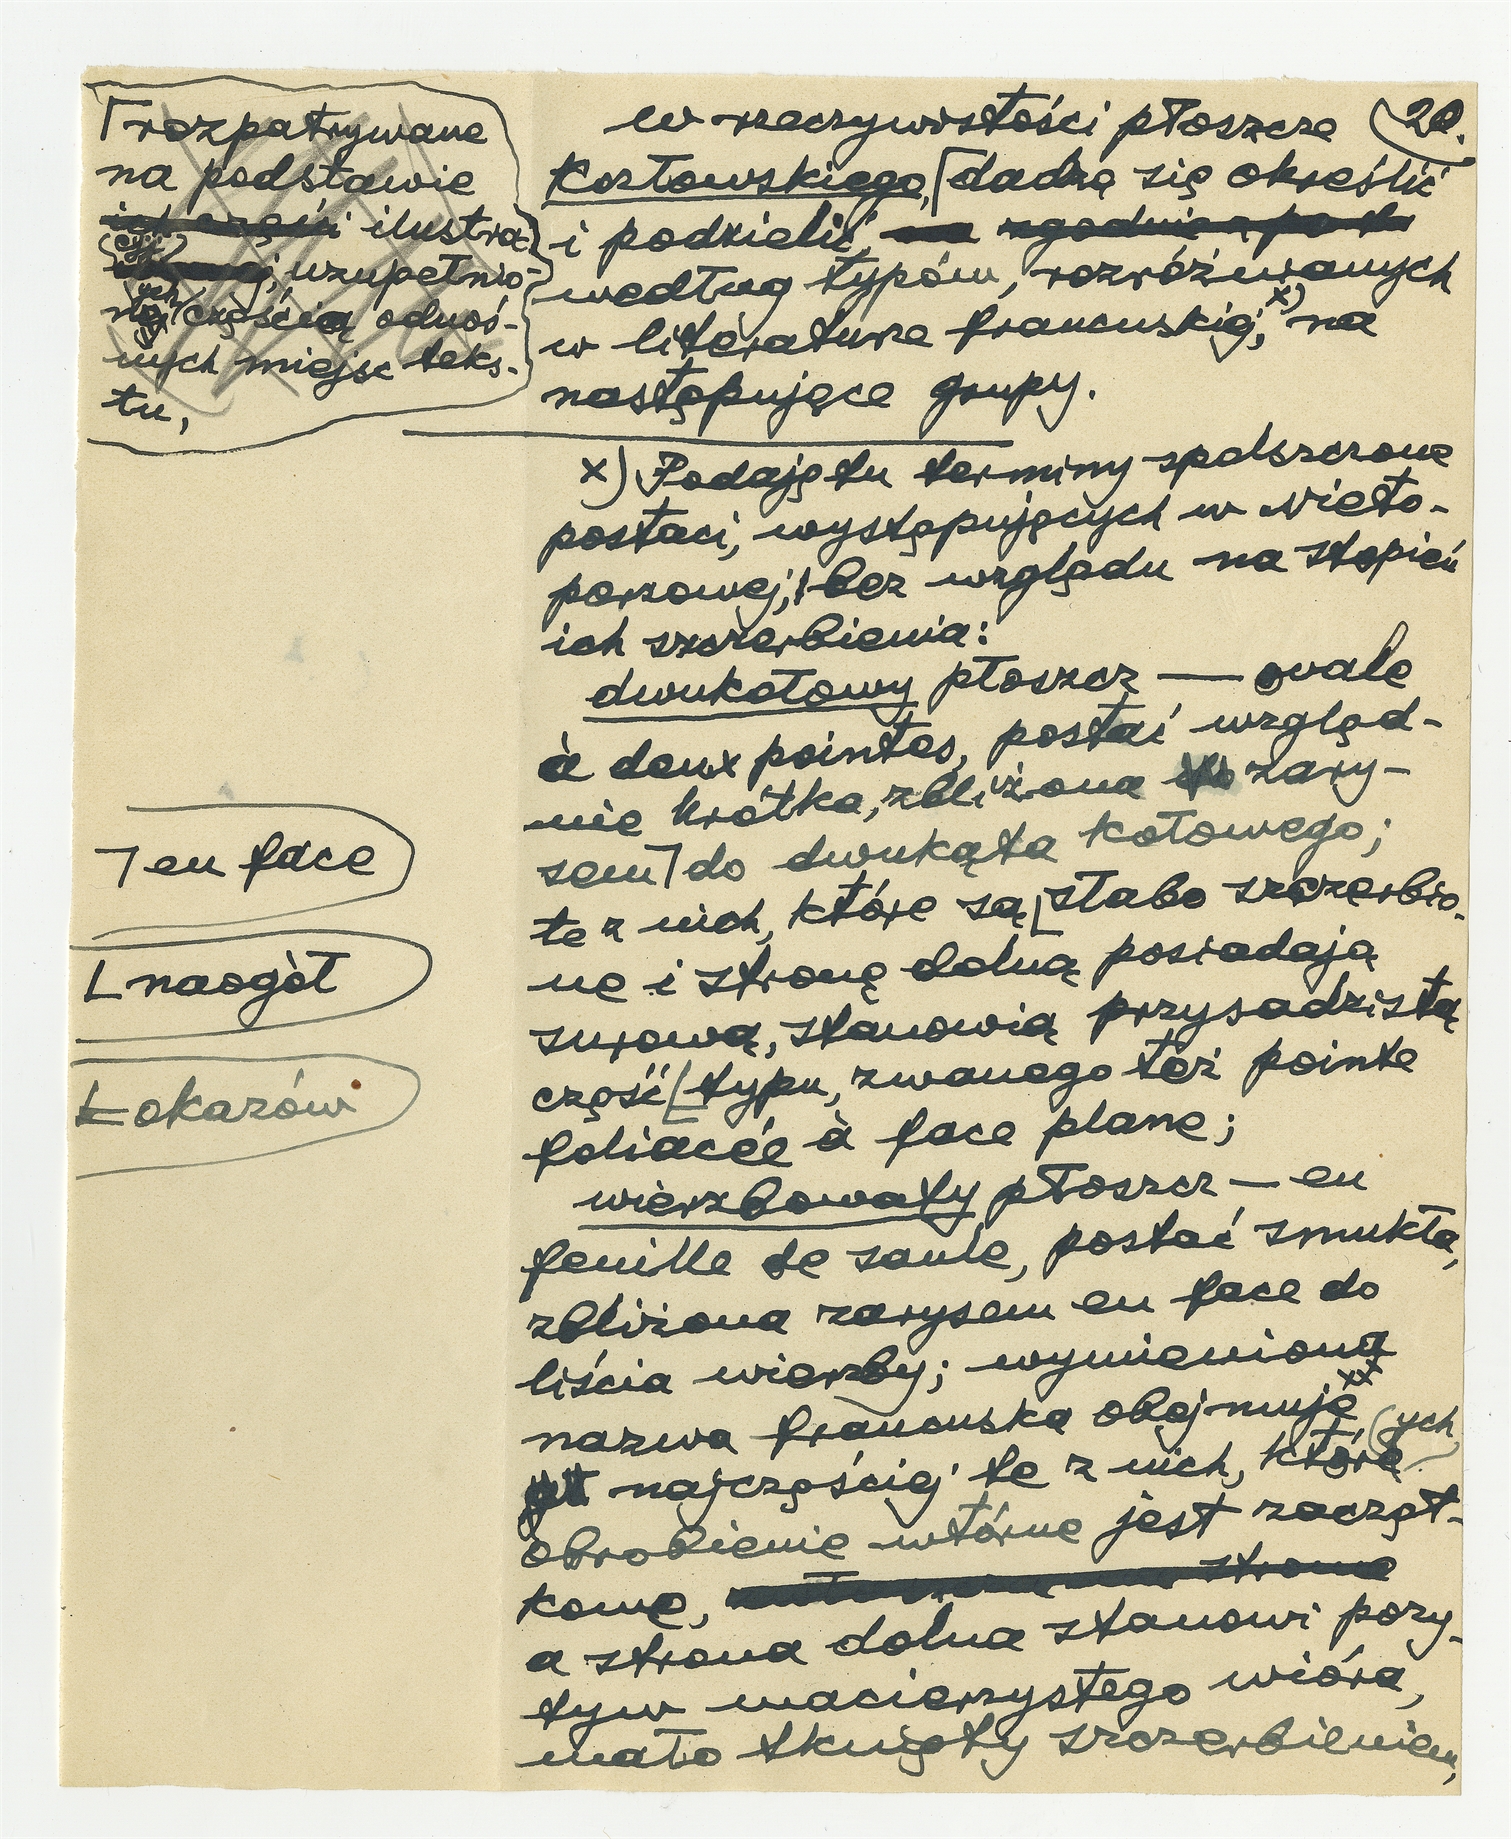 20.
⌈rozpatrywane
na podstawie
ilustra-
cyj, uzupełnio-
nych częścią odnoś-
nych miejsc teks-
tu,
w rzeczywistości płoszcze
Kozłowskiego,⌈dadzą się określić
i podzielić, zgodnie
według typów, rozróżnianych
w literaturze francuskiej,x) na
następujące grupy.
x) Podaję tu terminy spolszczone
postaci, występujących w Wieto-
porzowej, bez względu na stopień
ich szczerbienia:
dwukołowy płoszcz — ovale
à deux pointes, postać względ-
nie krótka, zbliżona zary-
sem ⌉ do dwukąta kołowego;
te z nich, które są ⌊ słabo szczerbio-
ne i stronę dolną posiadają
surową, stanowią przysadzistą
część ⌊ typu, zwanego też pointe
foliacée à face plane;
wierzbowaty płoszcz — en
feuille de saule, postać smukła,
zbliżona zarysem en face do
liścia wierzby; wymieniona
nazwa francuska obejmuje xx
najczęściej te z nich, których
obrobienie wtórne jest zacząt-
kowe, strona
a strona dolna stanowi pozy-
tyw macierzystego wióra,
mało tknięty szczerbieniem,
⌉ en face
⌊ naogół
⌊ okazów